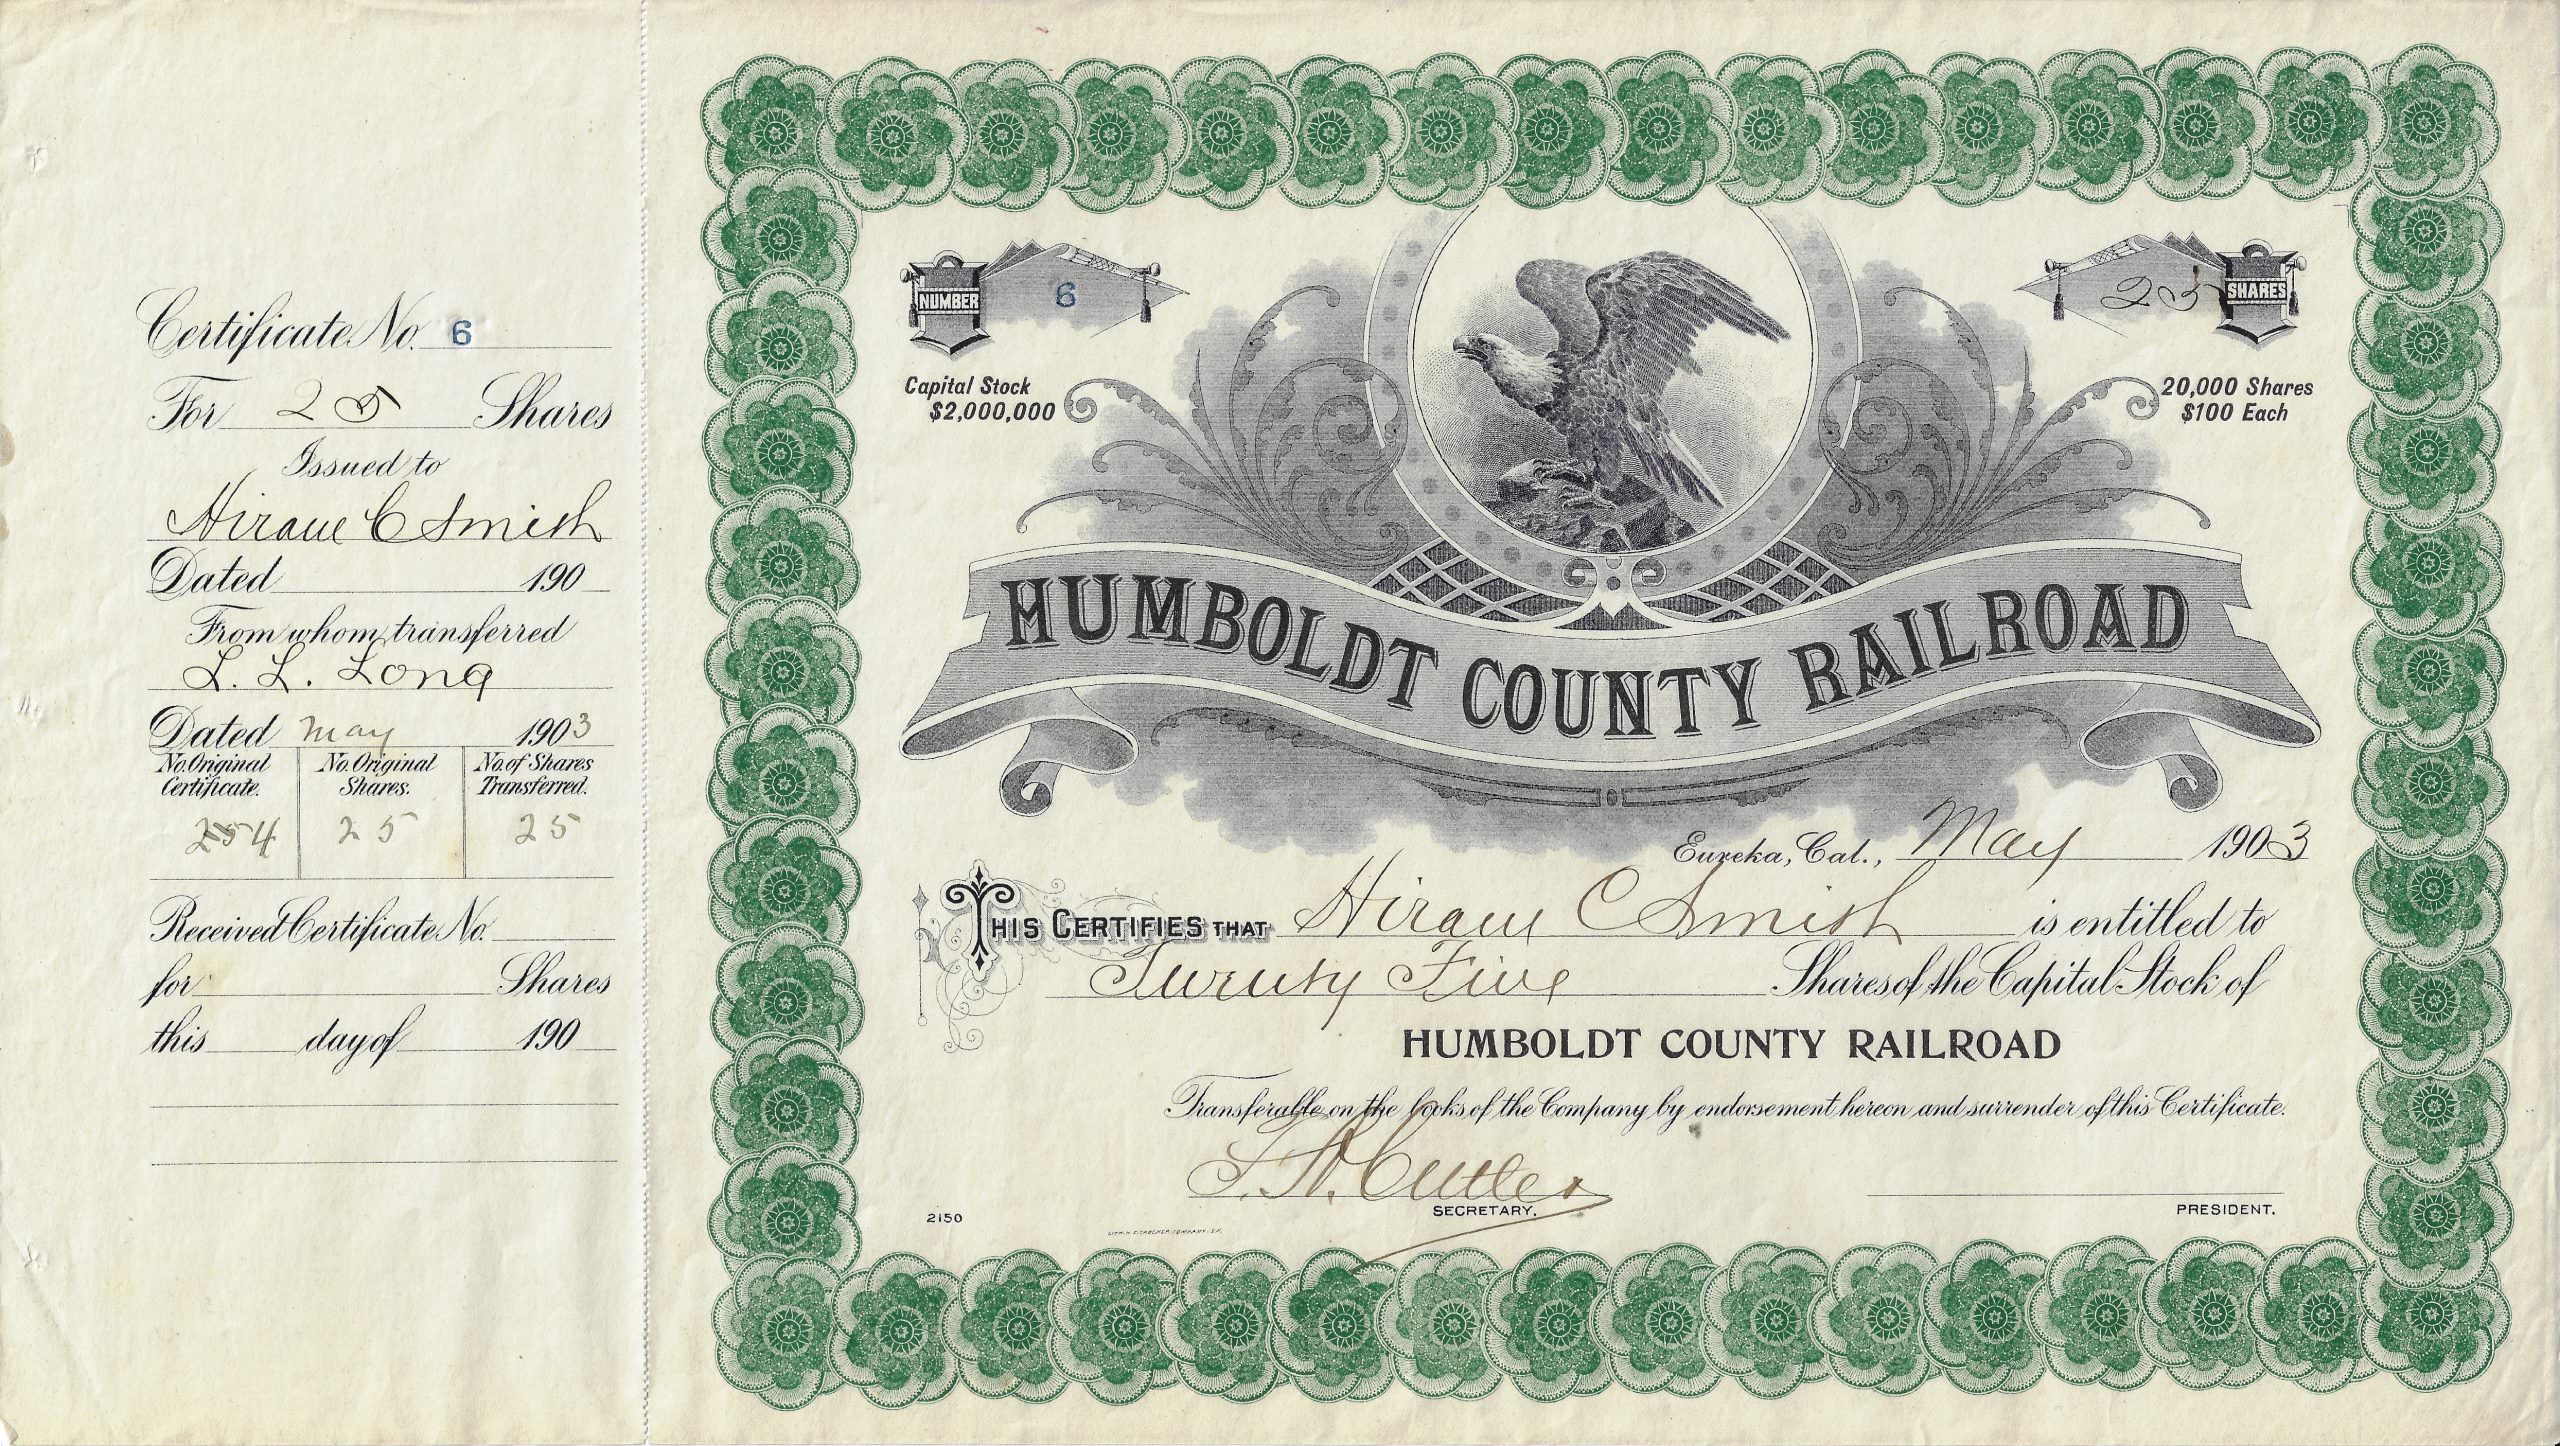 Certificate No. 6
For 25 Shares
Issued to
Hiram C Smith
Dated 190
From whom transferred
L. L. Long
Dated May 1903
No. Original Certificate.
No. Original Shares.
No. of Shares Transferred.
254 25 25
Received Certificate No.
for Shares
this day of 190
NUMBER 6
25 SHARES
Capital Stock
$2,000,000
20,000 Shares
$100 Each
HUMBOLDT COUNTY RAILROAD
Eureka, Cal., May 1903
THIS CERTIFIES THAT Hiram C Smith is entitled to
Twenty Five Shares of the Capital Stock of
HUMBOLDT COUNTY RAILROAD
Transferable on the books of the Company by endorsement hereon and surrender of this Certificate.
Cutler
SECRETARY.
PRESIDENT.
2150